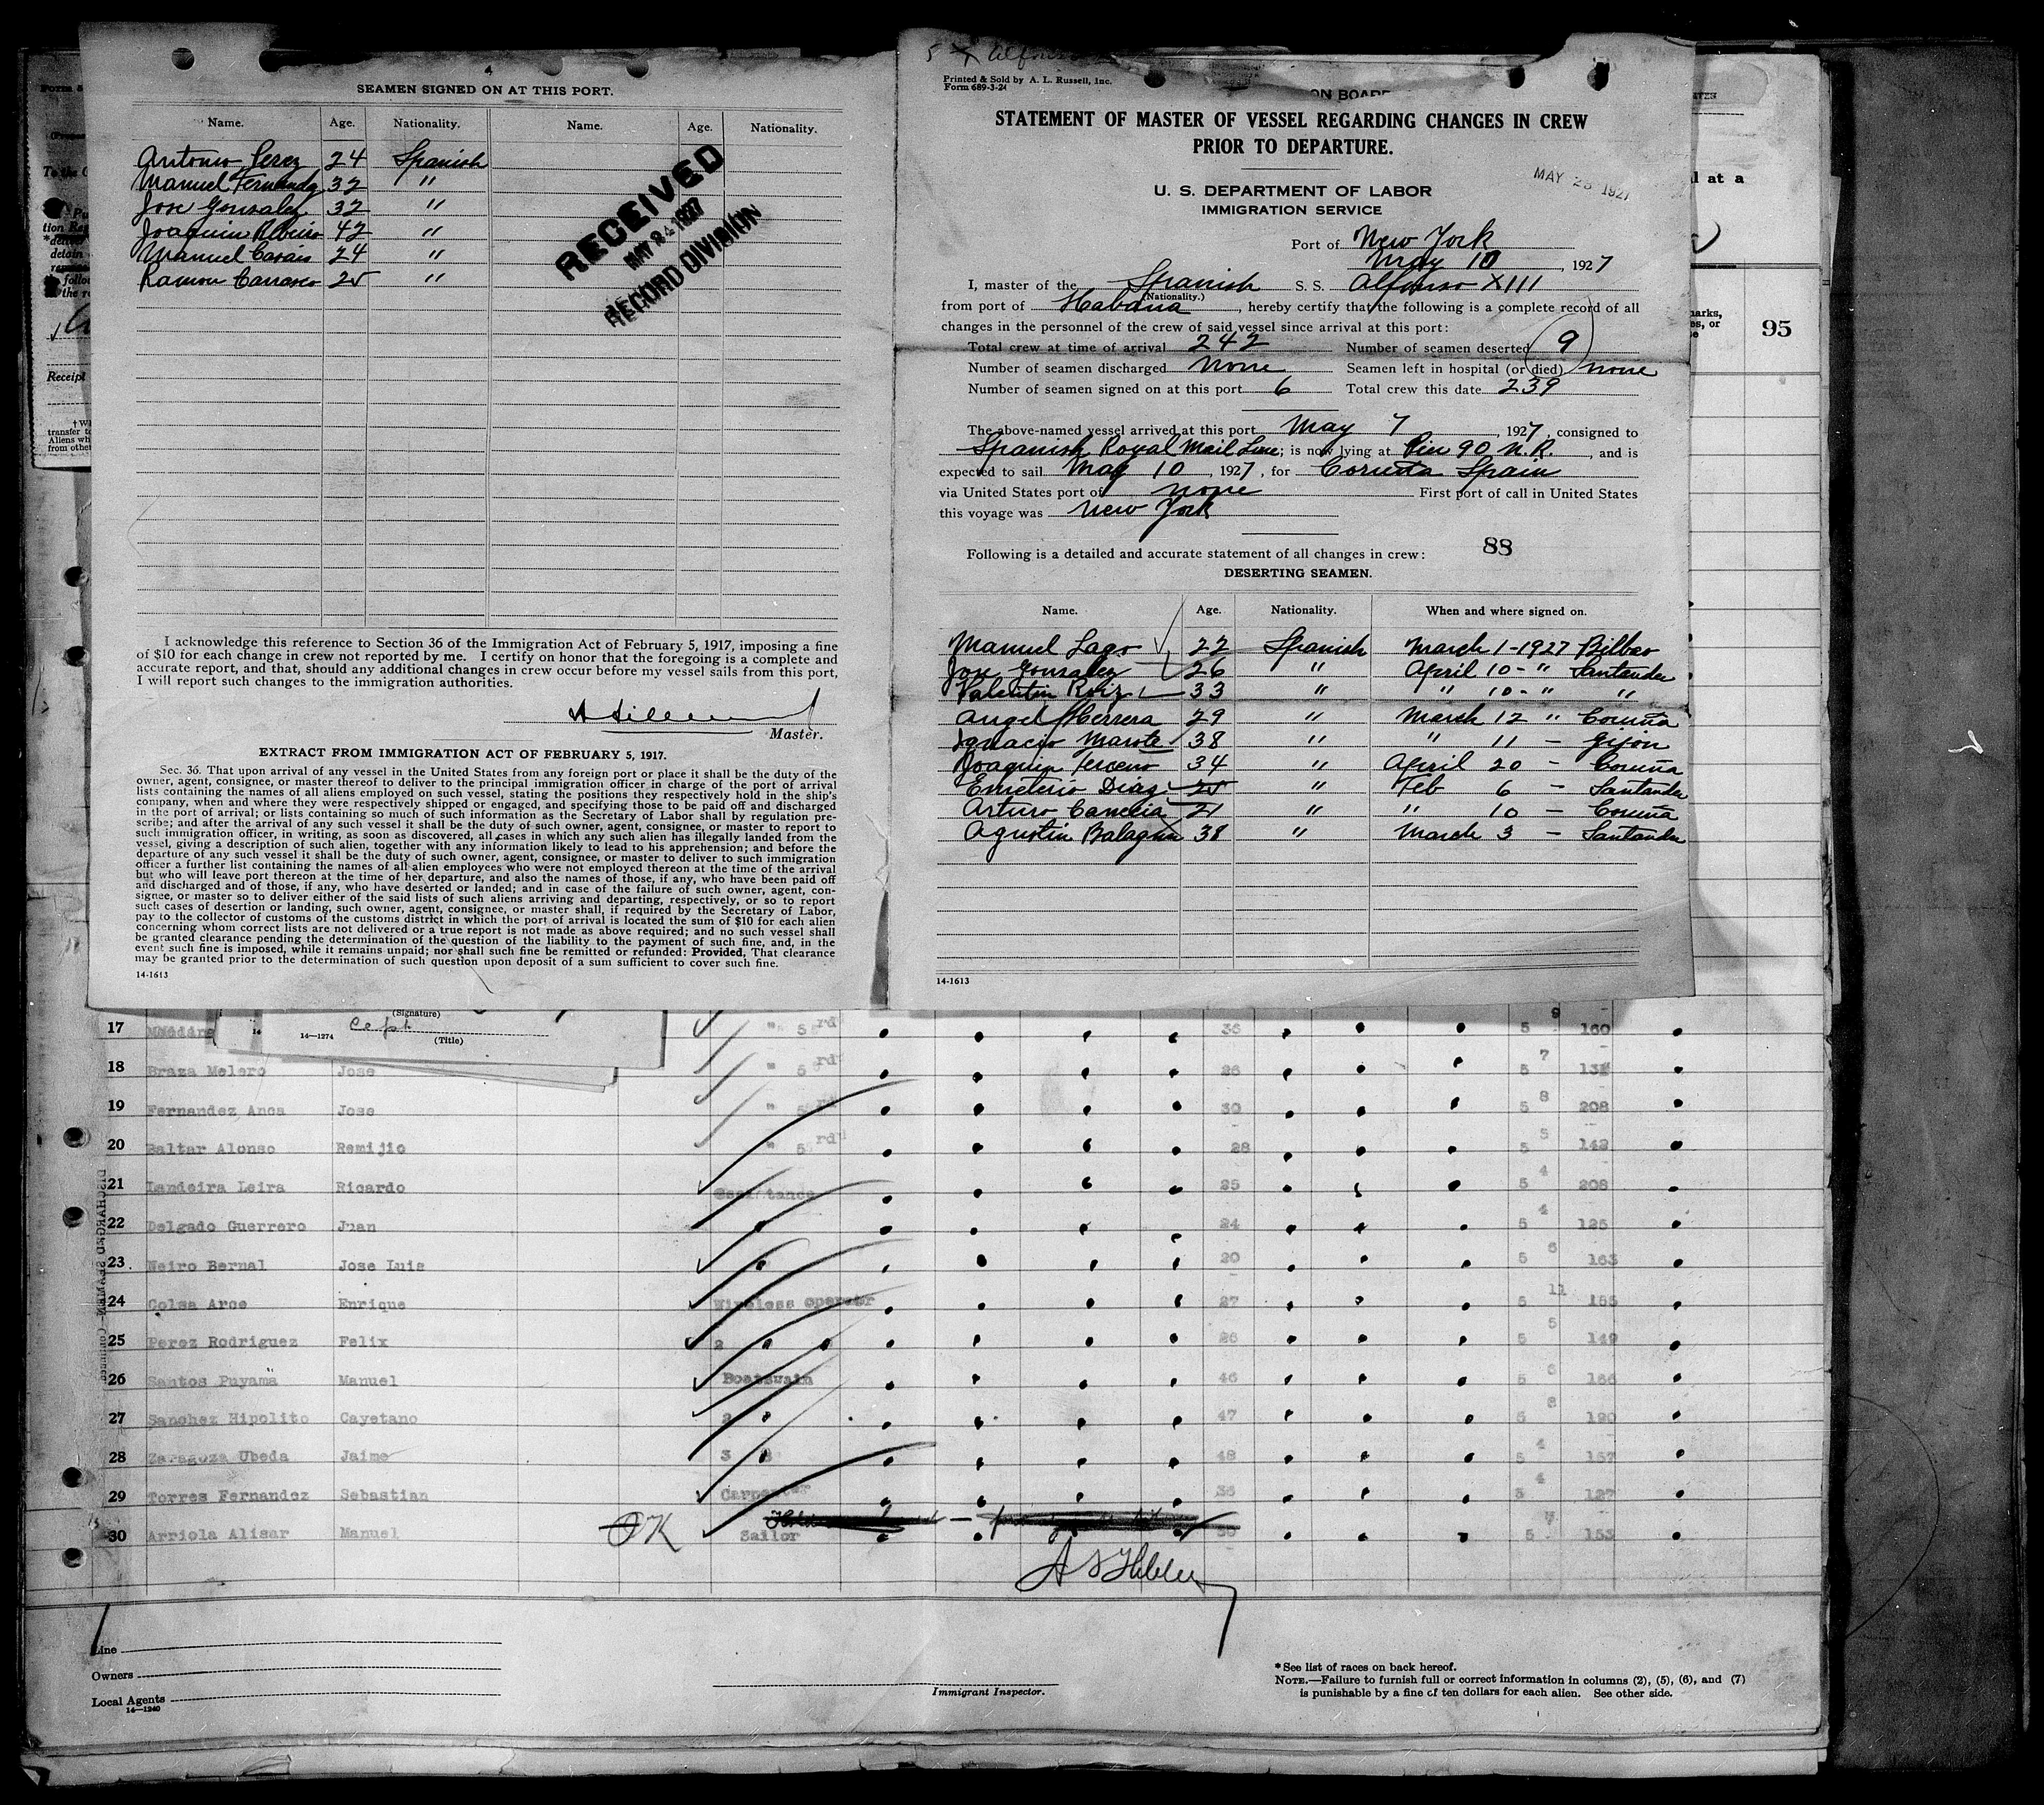 SEAMEN SIGNED ON AT THIS PORT.
Name. Age. Nationality. Name. Age. Nationality.
Antonio Perez 24 Spanish
Manuel Fernandez 32 "
Jose Gonzalez 32 "
Joaquin 42 "
Manuel 24 "
Ramon Carrasco 25 "
RECEIVED
MAY 24 1927
RECORD DIVISION
I acknowledge this reference to Section 36 of the Immigration Act of February 5, 1917, imposing a fine
of $10 for each change in crew not reported by me. I certify on honor that the foregoing is a complete and
accurate report, and that, should any additional changes in crew occur before my vessel sails from this port,
I will report such changes to the immigration authorities.
Master.
EXTRACT FROM IMMIGRATION ACT OF FEBRUARY 5, 1917.
Sec. 36. That upon arrival of any vessel in the United States from any foreign port or place it shall be the duty of the
owner, agent, consignee, or master thereof to deliver to the principal immigration officer in charge of the port of arrival
lists containing the names of all aliens employed on such vessel, stating the positions they respectively hold in the ship's
company, when and where they were respectively shipped or engaged, and specifying those to be paid off and discharged
in the port of arrival; or lists containing so much of such information as the Secretary of Labor shall by regulation pre-
scribe; and after the arrival of any such vessel it shall be the duty of such owner, agent, consignee, or master to report to
such immigration officer, in writing, as soon as discovered, all cases in which any such alien has illegally landed from the
vessel, giving a description of such alien, together with any information likely to lead to his apprehension; and before the
departure of any such vessel it shall be the duty of such owner, agent, consignee, or master to deliver to such immigration
officer a further list containing the names of all alien employees who were not employed thereon at the time of the arrival
but who will leave port thereon at the time of her departure, and also the names of those, if any, who have been paid off
and discharged and of those, if any, who have deserted or landed; and in case of the failure of such owner, agent, con-
signee, or master so to deliver either of the said lists of such aliens arriving and departing, respectively, or so to report
such cases of desertion or landing, such owner, agent, consignee, or master shall, if required by the Secretary of Labor,
pay to the collector of customs of the customs district in which the port of arrival is located the sum of $10 for each alien
concerning whom correct lists are not delivered or a true report is not made as above required; and no such vessel shall
be granted clearance pending the determination of the question of the liability to the payment of such fine, and, in the
event such fine is imposed, while it remains unpaid; nor shall such fine be remitted or refunded: Provided, That clearance
may be granted prior to the determination of such question upon deposit of a sum sufficient to cover such fine.
14-1613
Printed & Sold by A. L. Russell, Inc.
Form 689-3-24
ON BOARD
STATEMENT OF MASTER OF VESSEL REGARDING CHANGES IN CREW
PRIOR TO DEPARTURE.
MAY 23 1927
U. S. DEPARTMENT OF LABOR
IMMIGRATION SERVICE
Port of New York
May 10, 1927
I, master of the Spanish S. S. Alfonso XIII
(Nationality.)
from port of Habana, hereby certify that the following is a complete record of all
changes in the personnel of the crew of said vessel since arrival at this port:
Total crew at time of arrival 242 Number of seamen deserted 9
Number of seamen discharged none Seamen left in hospital (or died) none
Number of seamen signed on at this port 6 Total crew this date 239
The above-named vessel arrived at this port May 7, 1927, consigned to
Spanish Royal Mail Line; is now lying at Pier 90 N.R., and is
expected to sail May 10, 1927, for Coruña Spain
via United States port of none First port of call in United States
this voyage was New York
Following is a detailed and accurate statement of all changes in crew: 88
DESERTING SEAMEN.
Name. Age. Nationality. When and where signed on.
Manuel Lago 22 Spanish March 1-1927 Bilbao
Jose Gonzalez 26 " April 10-" Santander
Valentin Ruiz 33 " " 10-" "
Angel Herrera 29 " March 12 " Coruña
Ignacio Marote 38 " " 11 - Gijon
Joaquin Terceno 34 " April 20 - Coruña
Emeterio Diaz 25 " Feb 6 - Santander
Arturo Cancela 21 " " 10 - Coruña
Agustin Balaguer 38 " March 3 - Santander
14-1613
95
(Signature)
14-1274
(Title)
17 " 5rd 36 5 9 160
18 Braza Melero Jose " 5rd 26 5 7
19 Fernandez Anca Jose " 5rd 30 5 8 208
20 Baltar Alonso Remijio " 5rd 28 5 5 142
21 Landeira Leira Ricardo 25 5 4 208
22 Delgado Guerrero Juan 24 5 4 125
23 Neiro Bernal Jose Luis 20 5 6 163
24 Colsa Arce Enrique Wireless operator 27 5 11 155
25 Perez Rodriguez Felix 2 " " 26 5 5 149
26 Santos Puyama Manuel Boatswain 46 5 6 166
27 Sanchez Hipolito Cayetano 2 " 47 5 8 190
28 Zaragoza Ubeda Jaime 3 " 48 5 4 157
29 Torres Fernandez Sebastian Carpenter 36 5 4 127
30 Arriola Alisar Manuel OK Sailor 5 7 153
Line
Owners
Local Agents
14-1240
Immigrant Inspector.
*See list of races on back hereof.
NOTE.—Failure to furnish full or correct information in columns (2), (5), (6), and (7)
is punishable by a fine of ten dollars for each alien. See other side.